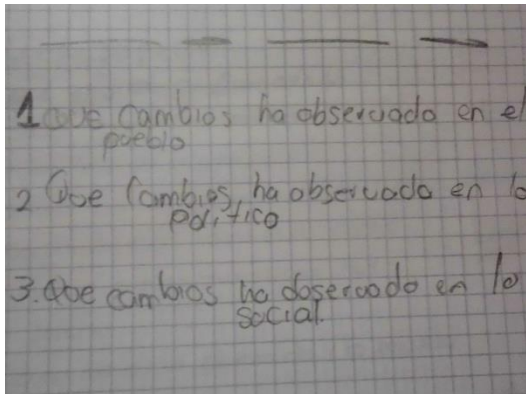 1 Que Cambios ha observado en el
pueblo
2 Que Cambios, ha observado en lo
político
3. Que cambios ha doservado en lo
social.